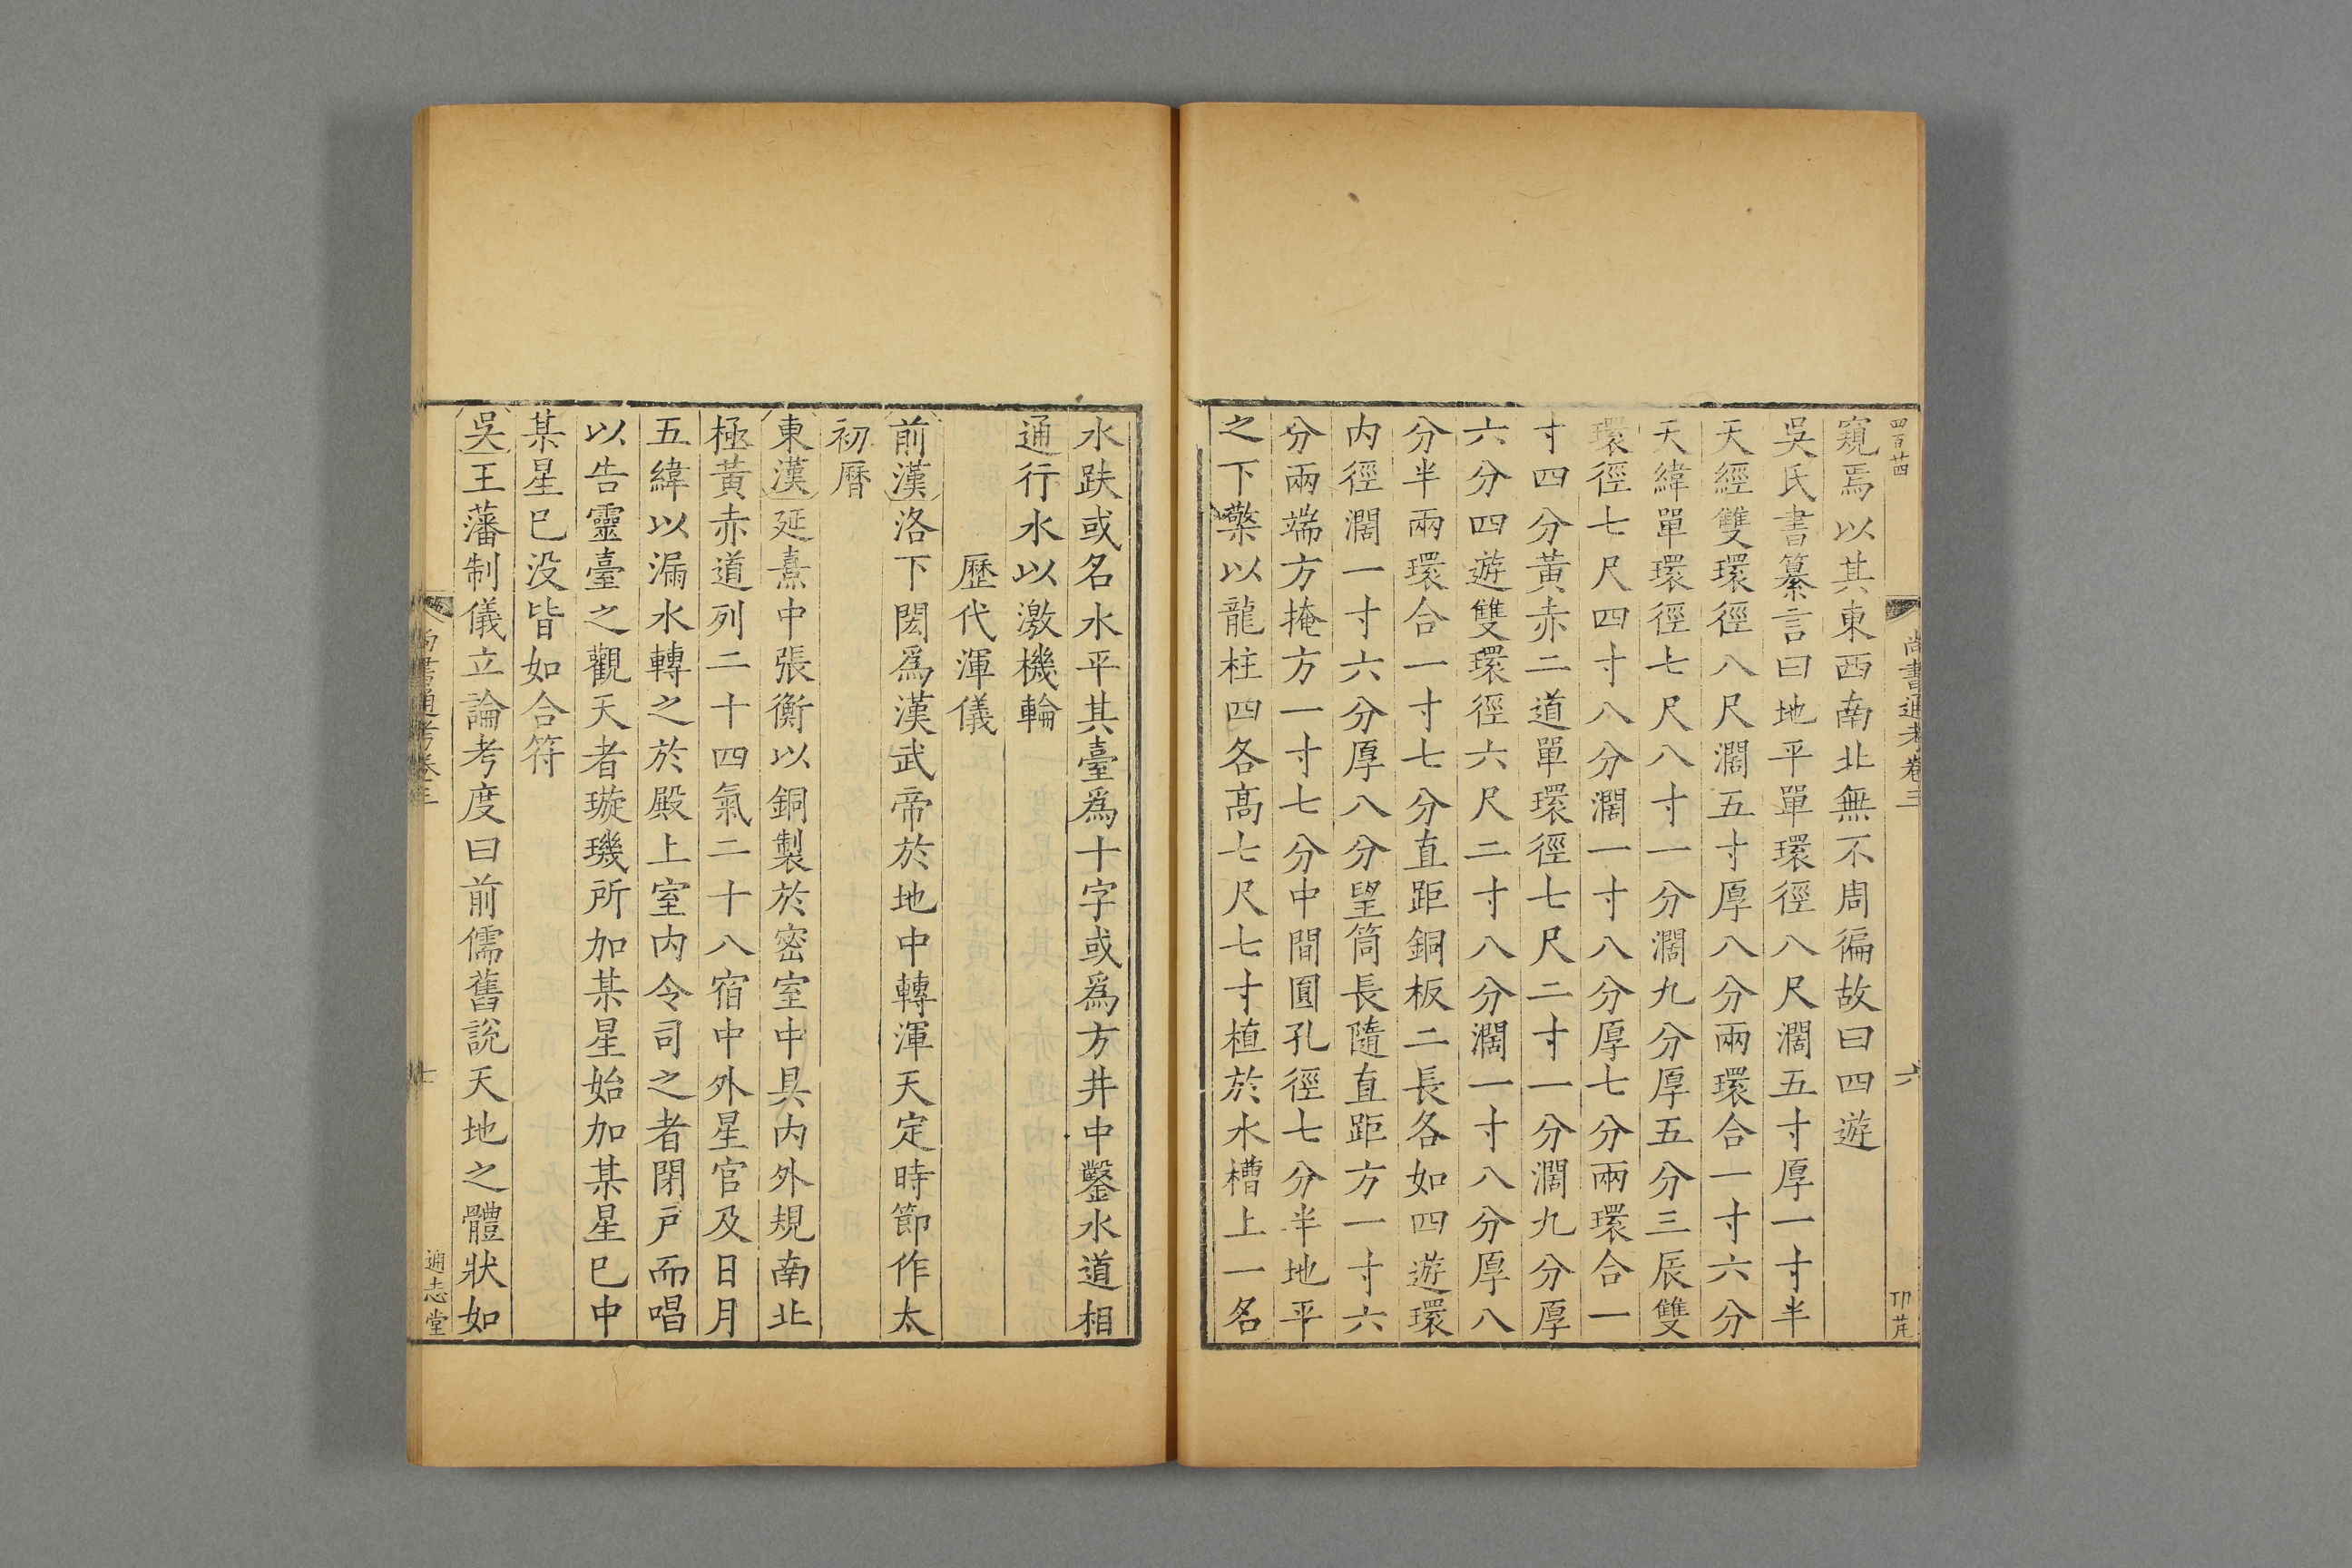 尚書通考卷三
六
窺焉以其東西南北無不周徧故曰四遊
吳氏書纂言曰地平單環徑八尺濶五寸厚一寸半
天經雙環徑八尺濶五寸厚八分兩環合一寸六分
天緯單環徑七尺八寸一分濶九分厚五分三辰雙
環徑七尺四寸八分濶一寸八分厚七分兩環合一
寸四分黃赤二道單環徑七尺二寸一分濶九分厚
六分四遊雙環徑六尺二寸八分濶一寸八分厚八
分半兩環合一寸七分直距銅板二長各如四遊環
内徑濶一寸六分厚八分望筒長隨直距方一寸六
分兩端方掩方一寸七分中間圓孔徑七分半地平
之下檠以龍柱四各高七尺七寸植於水槽上一名
水趺或名水平其臺爲十字或爲方井中鑿水道相
通行水以激機輪
歷代渾儀
前漢洛下閎爲漢武帝於地中轉渾天定時節作太
初曆
東漢延熹中張衡以銅製於密室中具内外規南北
極黃赤道列二十四氣二十八宿中外星官及日月
五緯以漏水轉之於殿上室内令司之者閉戸而唱
以告靈臺之觀天者璇璣所加某星始加某星巳中
某星巳没皆如合符
吳王藩制儀立論考度曰前儒舊說天地之體狀如
尚書通考卷三
七
通志堂